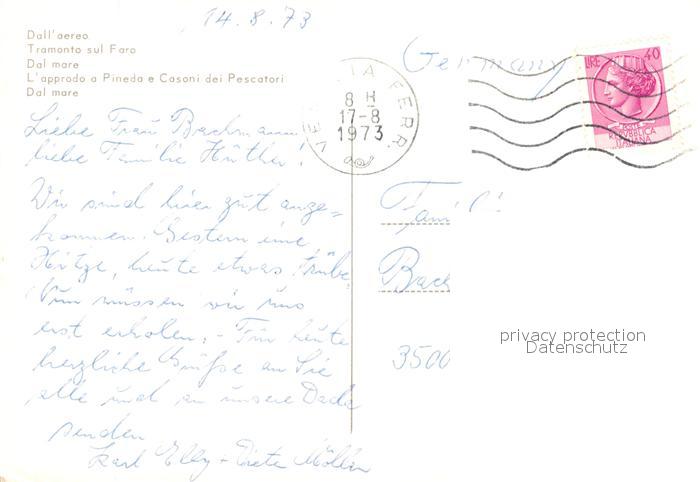 14.8.73
Dall'aereo
Tramonto sul Faro
Dal mare
L'approdo a Pineda e Casoni dei Pescatori
Dal mare
Germany
IA FERR.
8 H
17-8
1973
VE
LIRE 40
POSTE
REPVBBLICA
ITALIANA
Liebe Frau Bachmann
liebe Familie Hüther!
Wir sind hier gut ange=
kommen. Gestern eine
Hitze, heute etwas trübe
Nun müssen wir uns
erst erholen. - Für heute
herzliche Grüße an Sie
alle und an unsere
senden
Karl Elly + Dieter Möller
Fami
Bac
3500
privacy protection
Datenschutz